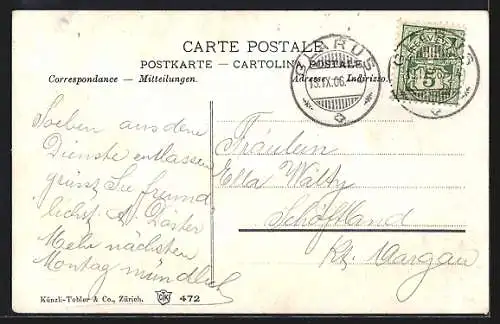 CARTE POSTALE
POSTKARTE – CARTOLINA POSTALE
Correspondance — Mitteilungen.
Adresse — Indirizzo.
GLARUS
13.IX.06.
HELVETIA
5
Soeben aus dem
Dienste entlassen
grüsst Sie freund
lichst A.
Mehr nächsten
Montag mündlich
Fräulein
Ella Wälty
Schöftland
Kt. Aargau
Künzli-Tobler & Co., Zürich.
472